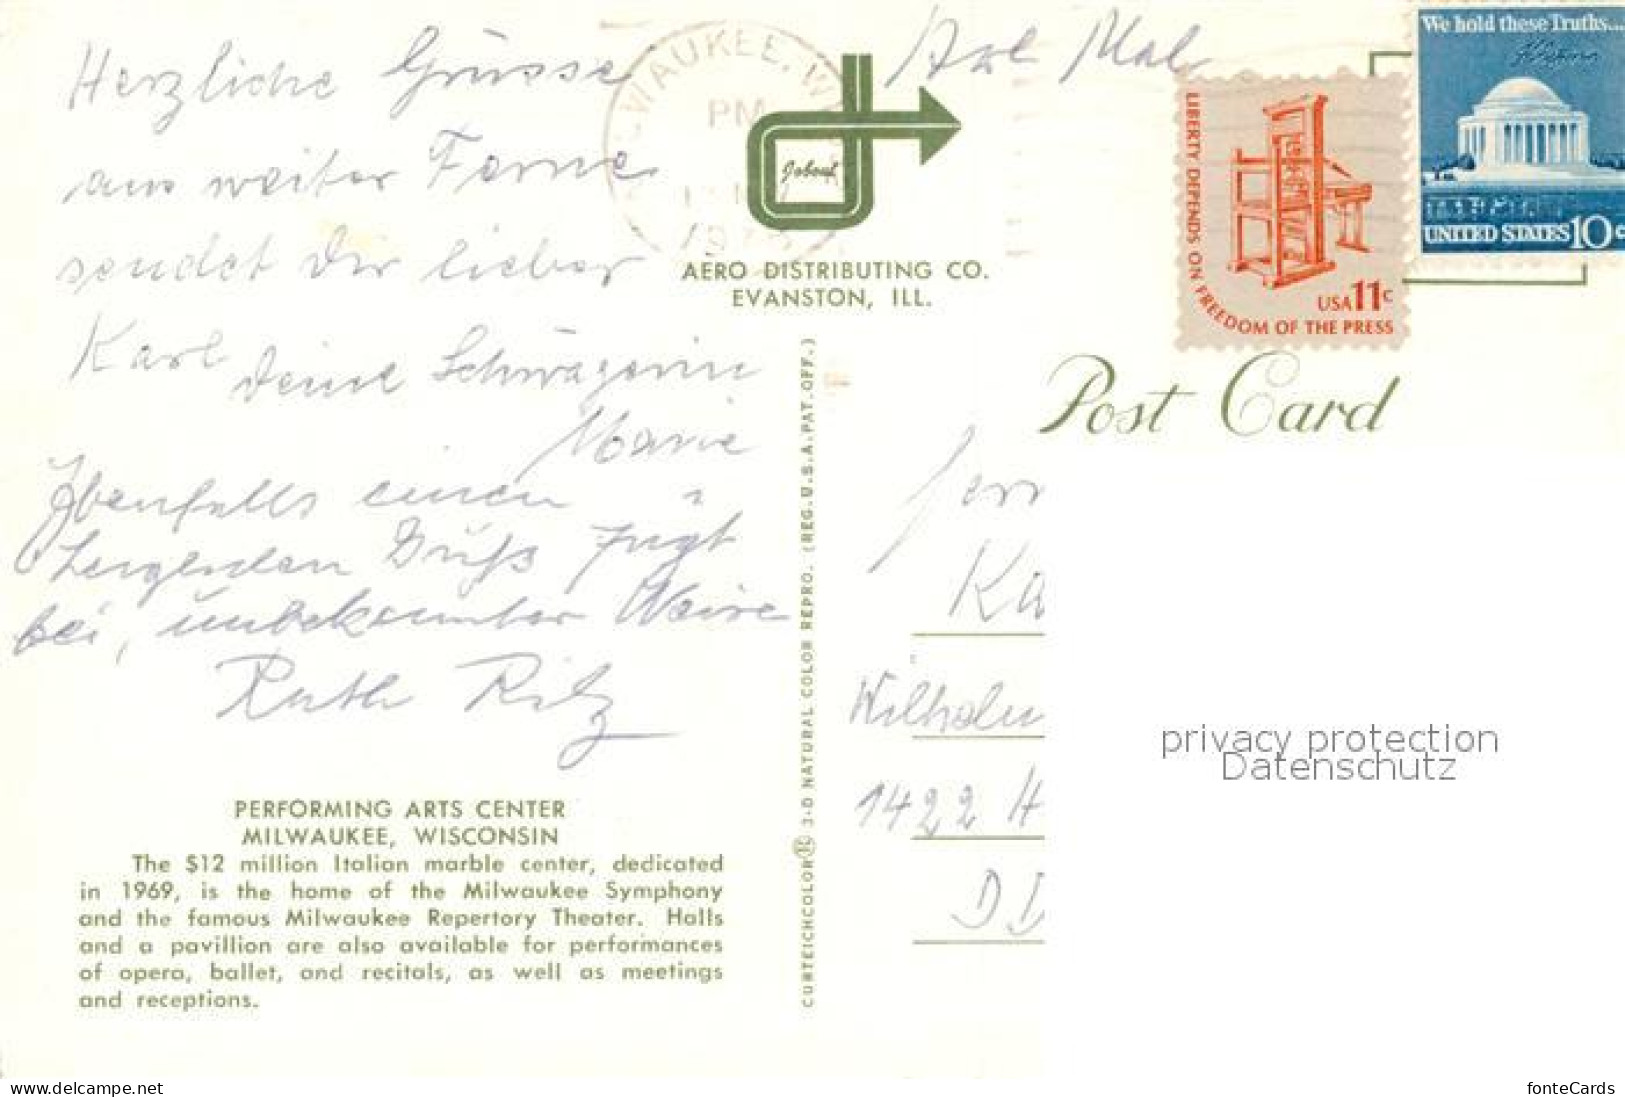 Herzliche Grüsse
aus weiter Ferne
sendet Dir lieber
Karl Deine Schwägerin
Marie
Ebenfalls einen
Gruß fügt
bei, unbekannter Weise
Ruth Ritz
PERFORMING ARTS CENTER
MILWAUKEE, WISCONSIN
The $12 million Italian marble center, dedicated
in 1969, is the home of the Milwaukee Symphony
and the famous Milwaukee Repertory Theater. Halls
and a pavillion are also available for performances
of opera, ballet, and recitals, as well as meetings
and receptions.
MILWAUKEE, W
PM
AERO DISTRIBUTING CO.
EVANSTON, ILL.
CURTEICHCOLOR® 3-D NATURAL COLOR REPRO. (REG. U.S.A. PAT. OFF.)
LIBERTY DEPENDS ON FREEDOM OF THE PRESS
USA 11c
We hold these Truths...
UNITED STATES 10c
Post Card
Ka
Wilhelm
1422 H
privacy protection
Datenschutz
www.delcampe.net
fonteCards